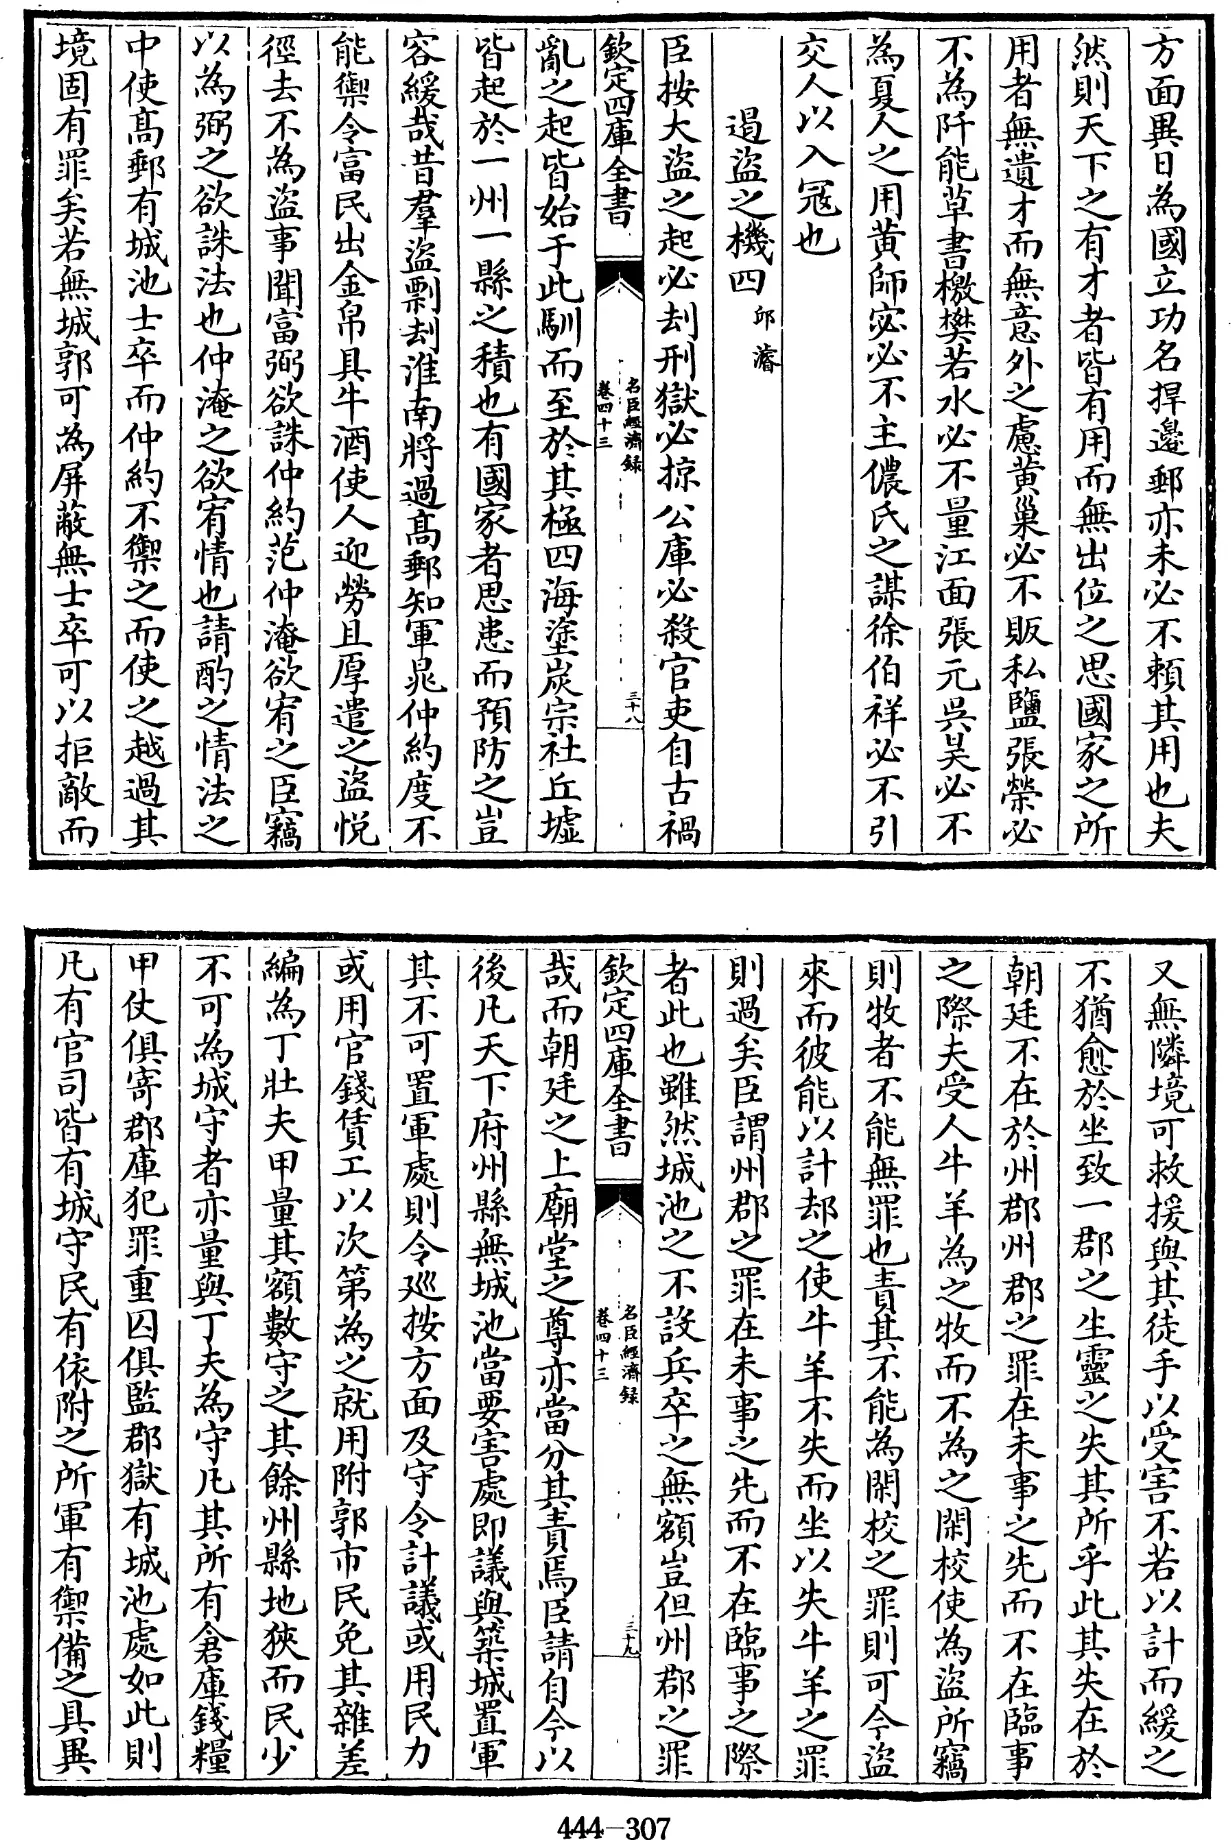 方面異日為國立功名捍邊郵亦未必不頼其用也夫
然則天下之有才者皆有用而無出位之思國家之所
用者無遺才而無意外之慮黄巢必不販私鹽張榮必
不為阡能草書檄樊若水必不量江面張元吳昊必不
為夏人之用黄師宓必不主儂氏之謀徐伯祥必不引
交人以入寇也
遏盜之機四 邱濬
臣按大盜之起必刦刑獄必掠公庫必殺官吏自古禍
欽定四庫全書
名臣經濟録
卷四十三
三十八
亂之起皆始于此馴而至於其極四海塗炭宗社丘墟
皆起於一州一縣之積也有國家者思患而預防之豈
容緩哉昔羣盜剽刦淮南將過髙郵知軍晁仲約度不
能禦令富民出金帛具牛酒使人迎勞且厚遣之盜悦
徑去不為盜事聞富弼欲誅仲約范仲淹欲宥之臣竊
以為弼之欲誅法也仲淹之欲宥情也請酌之情法之
中使髙郵有城池士卒而仲約不禦之而使之越過其
境固有罪矣若無城郭可為屏蔽無士卒可以拒敵而
又無隣境可救援與其徒手以受害不若以計而緩之
不猶愈於坐致一郡之生靈之失其所乎此其失在於
朝廷不在於州郡州郡之罪在未事之先而不在臨事
之際夫受人牛羊為之牧而不為之閑校使為盜所竊
則牧者不能無罪也責其不能為閑校之罪則可今盜
來而彼能以計却之使牛羊不失而坐以失牛羊之罪
則過矣臣謂州郡之罪在未事之先而不在臨事之際
者此也雖然城池之不設兵卒之無額豈但州郡之罪
欽定四庫全書
名臣經濟録
卷四十三
三十九
哉而朝廷之上廟堂之尊亦當分其責焉臣請自今以
後凡天下府州縣無城池當要害處即議與築城置軍
其不可置軍處則令廵按方面及守令計議或用民力
或用官錢賃工以次第為之就用附郭市民免其雜差
編為丁壯夫甲量其額數守之其餘州縣地狹而民少
不可為城守者亦量與丁夫為守凡其所有倉庫錢糧
甲仗俱寄郡庫犯罪重囚俱監郡獄有城池處如此則
凡有官司皆有城守民有依附之所軍有禦備之具異
444-307